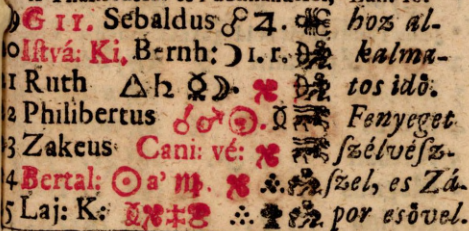 G 11. Sebaldus ☍ ♃. hoz al-
10 Iſtvá: Ki. Bernh: ☽ 1. r. kalma-
21 Ruth △ ♄ ☿ ☽. tos idő.
22 Philibertus ☌ ♂ ☉. ☿ Fenyeget
23 Zakeus Cani: vé: ſzélvéſz-
24 Bertal: ☉ a' ♍. ſzel, es Zá-
25 Laj: K: por esővel.